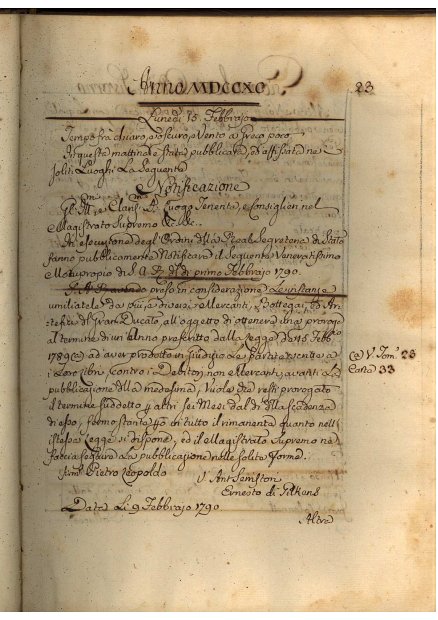 Anno MDCCXC.
23
Lunedì 15. Febbrajo
Tempo frà chiaro, e oscuro, Vento a Greco poco
In questa mattina è stata pubblicata, ed affissata ne
soliti Luoghi La Seguente
Notificazione
Gl' Ill.mi e Clariss.mi SS. Luogo Tenente, e Consiglieri nel
Magistrato Supremo
In esecuzione degl' Ordini della Real Segreteria di Stato
fanno pubblicamente Notificare il Seguente Veneratissimo
Motuproprio di S. A. R. del dì primo Febbrajo 1790.
S. A. R. avendo preso in considerazione Le instanze
umiliatele da più, e diversi Mercanti, Bottegai, ed Ar-
tefici del Gran Ducato, all' oggetto di ottenere una proroga
al termine di un' Anno prescritto dalla Legge de 15 Febb.
1789 (a) ad aver prodotto in Giudizio Le partite accese a
i Loro Libri contro i Debitori non Mercanti, avanti La
pubblicazione della medesima, Vuole che resti prorogato
il termine suddetto per altri sei Mesi dal dì della scadenza
di esso, fermo stante in tutto il rimanente quanto nell'
istessa Legge si dispone, ed il Magistrato Supremo ne
faccia seguire La pubblicazione nelle solite forme.
(a) V. Tom. 23
Carta 33
firm. Pietro Leopoldo
V. Ant. Serristori
Ernesto di Gilkens
Data Li 9 Febbrajo 1790
Altra